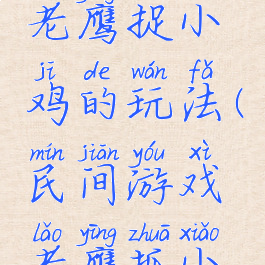 老鹰捉小
jī de wán fǎ
鸡的玩法(
mín jiān yóu xì
民间游戏
lǎo yīng zhuā xiǎo